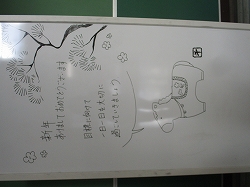 新年
あけましておめでとうございます
目標に向けて
一日一日を大切に
過ごしていきましょう